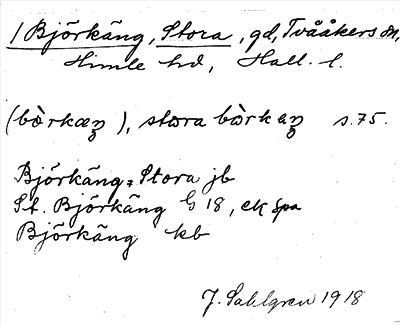 1 Björkäng, Stora, gd, Tvååkers sn,
Himle hd, Hall. l.
(bò̀rkæŋ), stora bò̀rkæŋ s. 75.
Björkäng, Stora jb
St. Björkäng G 18, ek Spa
Björkäng kb
J. Sahlgren 1918